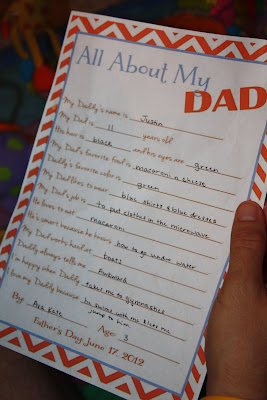 All About My
DAD
My Daddy's name is Justin
My Dad is 11 years old
His hair is black and his eyes are green
My Dad's favorite food is macaroni n cheese
Daddy's favorite color is green
My Dad likes to wear blue shirts & blue dresses
My Dad's job is to put clothes in the microwave
He loves to eat macaroni
He's smart because he knows how to go under water
My Dad works hard at boats
Daddy always tells me
I'm happy when Daddy takes me to gymnastics
I love my Daddy because he swims with me & lets me
jump to him
By: Ava Kate Age: 3
Father's Day June 17, 2012